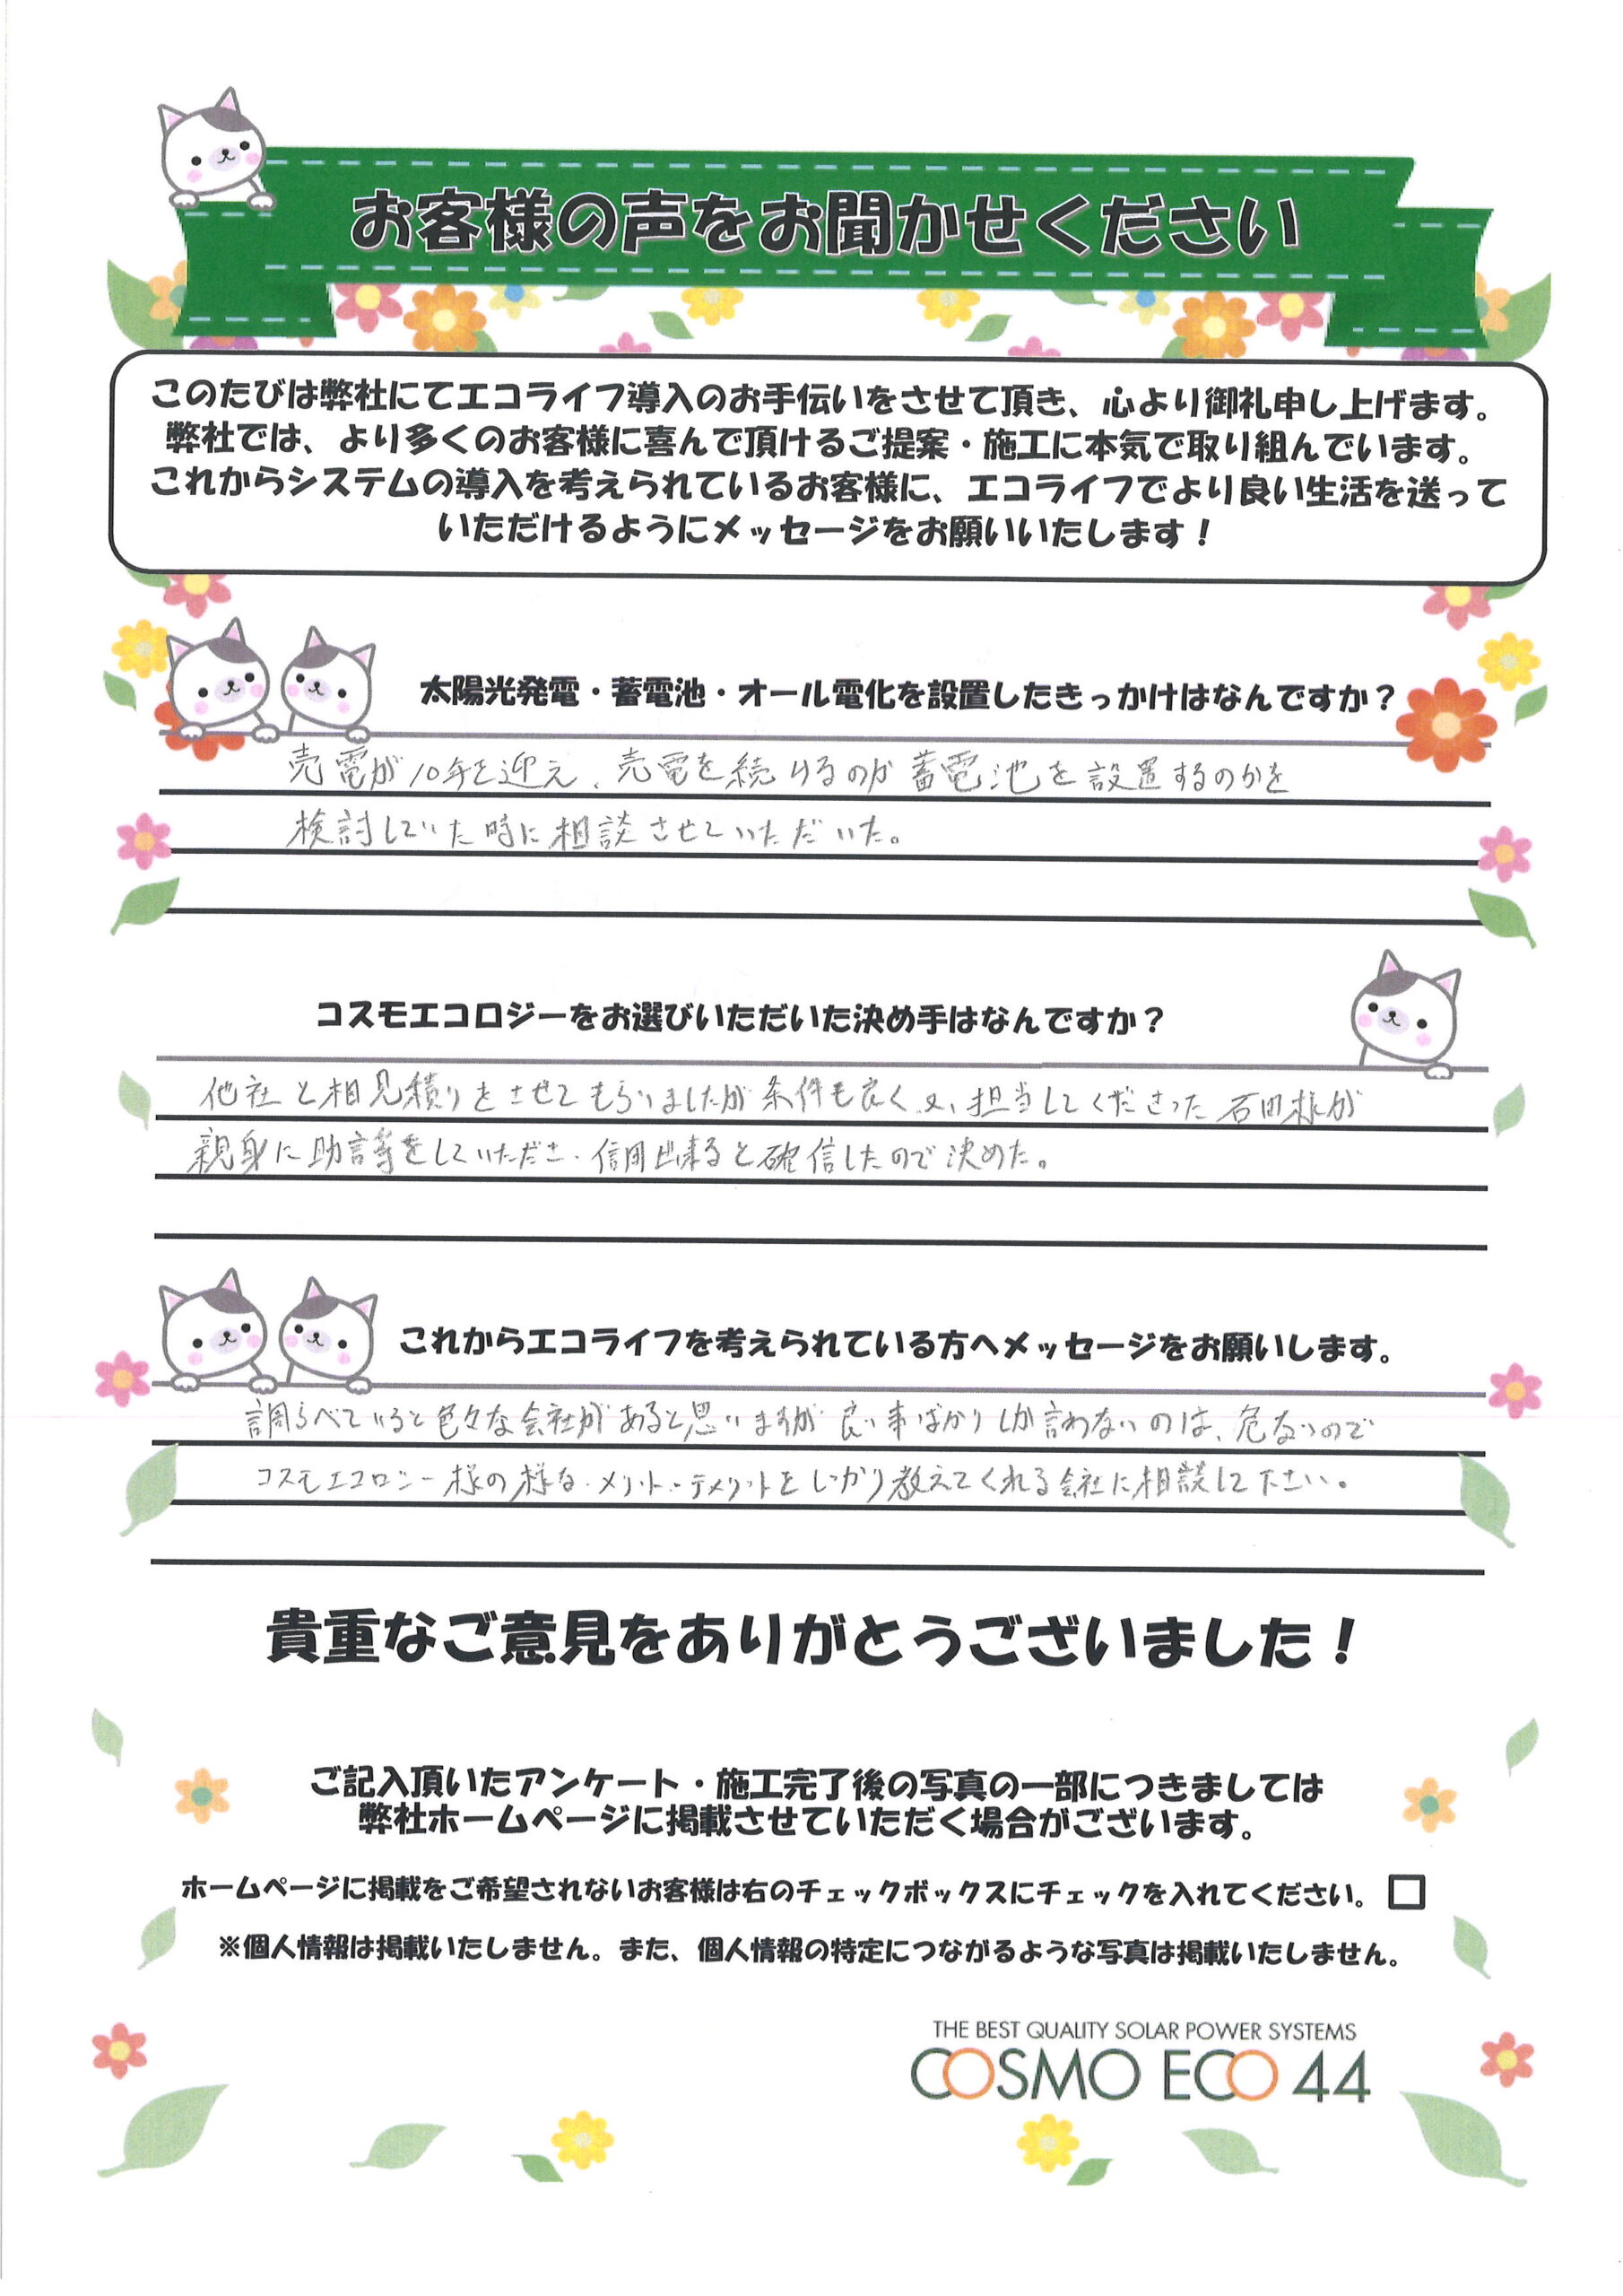 お客様の声をお聞かせください
このたびは弊社にてエコライフ導入のお手伝いをさせて頂き、心より御礼申し上げます。
弊社では、より多くのお客様に喜んで頂けるご提案・施工に本気で取り組んでいます。
これからシステムの導入を考えられているお客様に、エコライフでより良い生活を送って
いただけるようにメッセージをお願いいたします！
太陽光発電・蓄電池・オール電化を設置したきっかけはなんですか？
売電が10年を迎え、売電を続けるのか蓄電池を設置するのかを
検討していた時に相談させていただいた。
コスモエコロジーをお選びいただいた決め手はなんですか？
他社と相見積りをさせてもらいましたが条件も良く、又、担当してくださった石田様が
親身に助言等をしていただき、信用出来ると確信したので決めた。
これからエコライフを考えられている方へメッセージをお願いします。
調らべていると色々な会社があると思いますが良い事ばかりしか言わないのは、危ないので
コスモエコロジー様の様な、メリット・デメリットをしっかり教えてくれる会社に相談して下さい。
貴重なご意見をありがとうございました！
ご記入頂いたアンケート・施工完了後の写真の一部につきましては
弊社ホームページに掲載させていただく場合がございます。
ホームページに掲載をご希望されないお客様は右のチェックボックスにチェックを入れてください。
※個人情報は掲載いたしません。また、個人情報の特定につながるような写真は掲載いたしません。
THE BEST QUALITY SOLAR POWER SYSTEMS
COSMO ECO 44